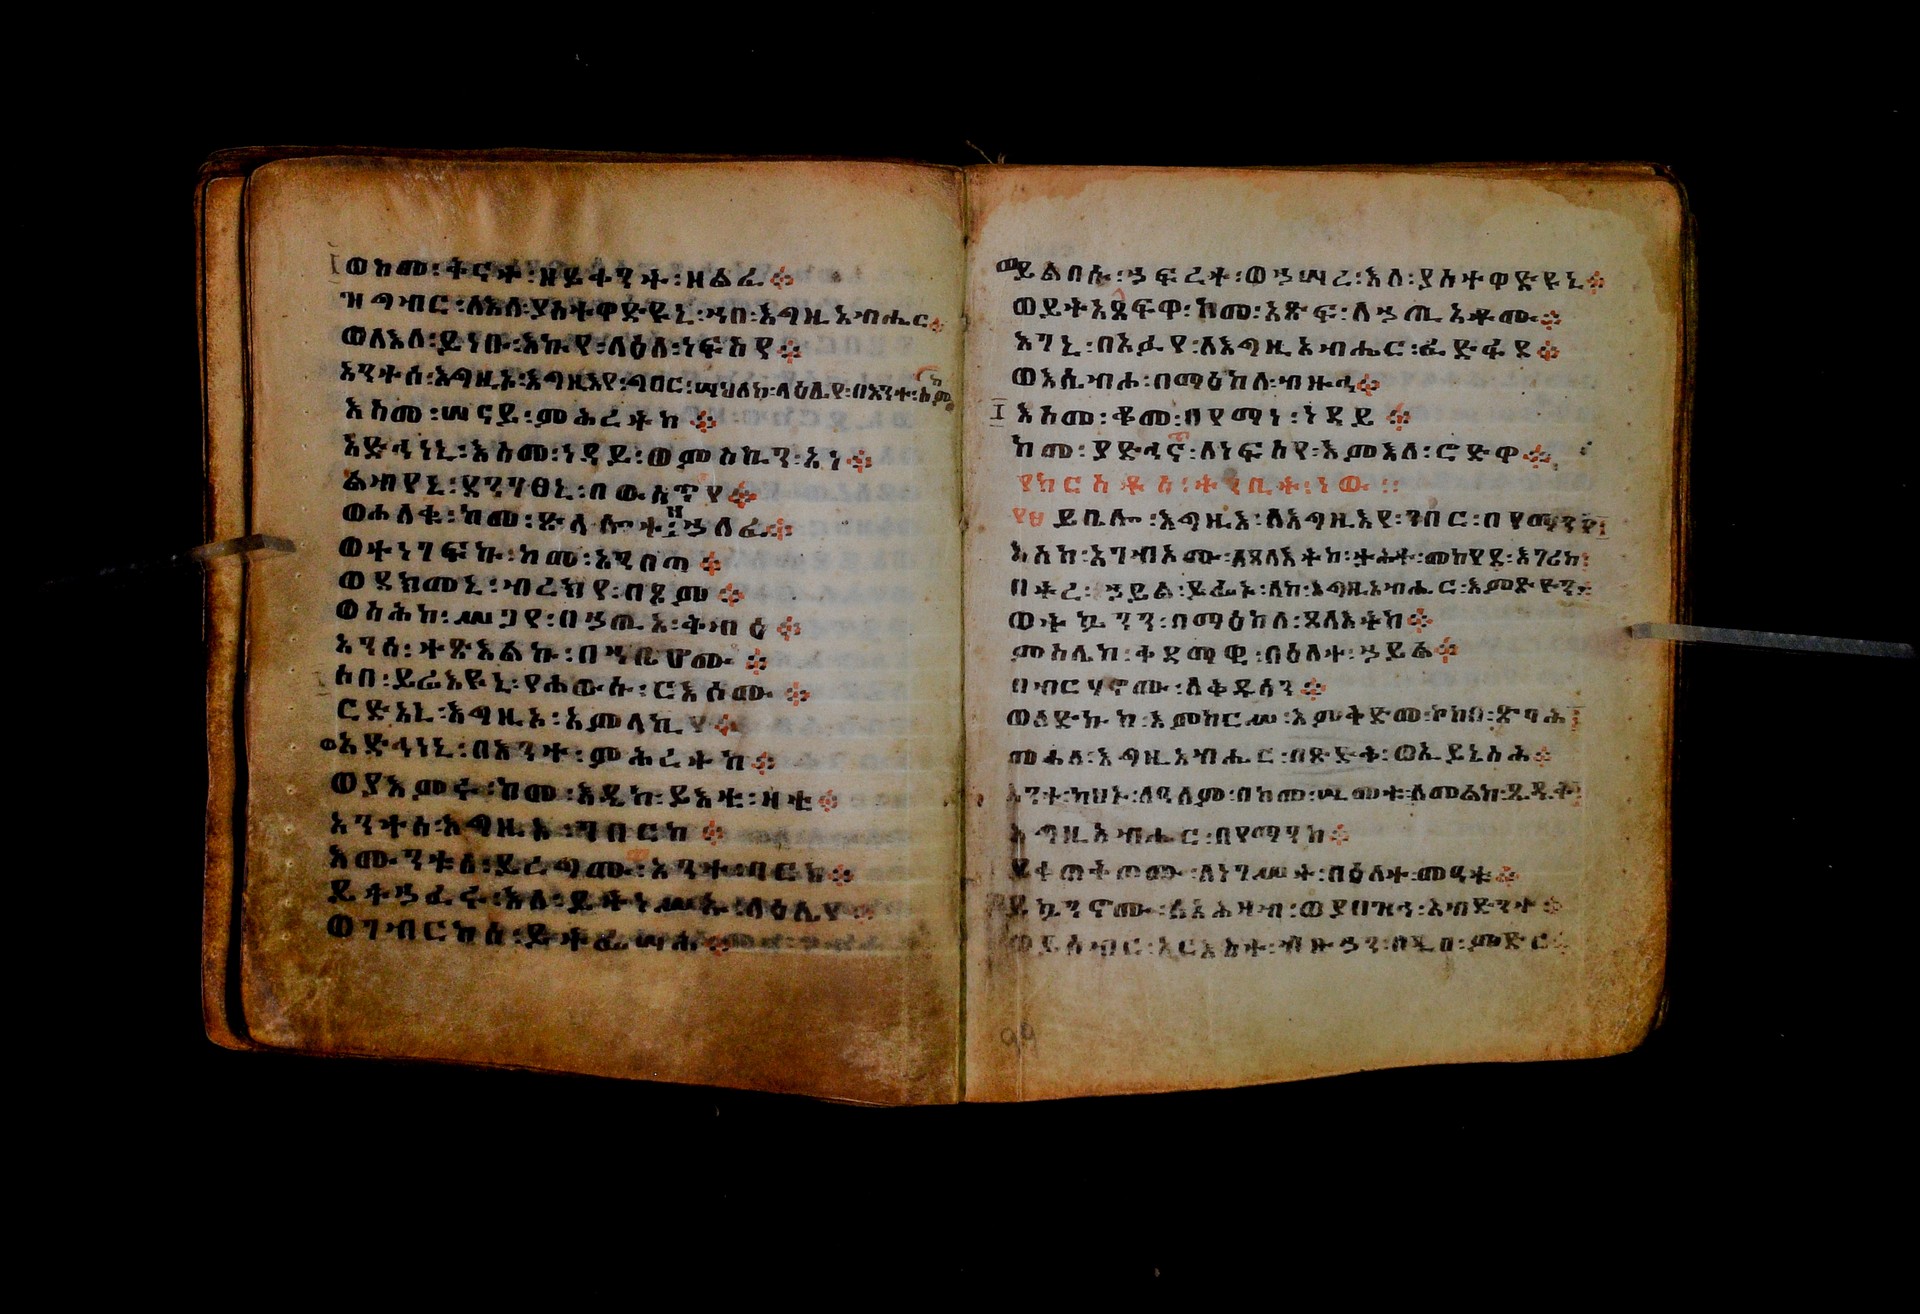 ወከመ፡ቅናት፡ዘይቀንት፡ዘልፈ
ዝግብር፡ለእለ፡ያስተዋድዩኒ፡ኀበ፡እግዚአብሔር
ወለእለ፡ይነቡ፡እኩየ፡ለዕለ፡ነፍስየ
አንተሰ፡እግዚኦ፡እግዚእየ፡ግበር፡ሣህለከ፡ላዕሌየ፡በእንተ፡ስምከ
እስመ፡ሠናይ፡ምሕረትከ
አድኅነኒ፡እስመ፡ነዳይ፡ወምስኪን፡አነ
ልብየኒ፡ደንገፀኒ፡በውስጥየ
ወሐለቁ፡ከመ፡ጽላሎት፡ዘኀለፈ
ወተነገፍኩ፡ከመ፡አንበጣ
ወደክመኒ፡ብረክየ፡በጾም
ወስሕከ፡ሥጋየ፡በኀጢአ፡ቅብዕ
አንሰ፡ተጽእልኩ፡በኀቤሆሙ
ሶበ፡ይሬእዩኒ፡የሐውሱ፡ርእሶሙ
ርድአኒ፡እግዚኦ፡አምላኪየ
ወአድኅነኒ፡በእንተ፡ምሕረትከ
ወያእምሩ፡ከመ፡እዴከ፡ይእቲ፡ዛቲ
አንተሰ፡እግዚኦ፡ገበርከ
እሙንቱሰ፡ይረግሙ፡አንተ፡ባርክ
ይትኀፈሩ፡እለ፡ይትነሥኡ፡ላዕሌየ
ወገብርከሰ፡ይትፈሣሕ
ወይልበሱ፡ኀፍረተ፡ወኀሣረ፡እለ፡ያስተዋድዩኒ
ወይትአጸፍዋ፡ከመ፡አጽፍ፡ለኀጢአቶሙ
እገኒ፡በአፉየ፡ለእግዚአብሔር፡ፈድፋደ
ወእሴብሖ፡በማዕከለ፡ብዙኃ
እስመ፡ቆመ፡በየማነ፡ነዳይ
ከመ፡ያድኅና፡ለነፍስየ፡እምእለ፡ሮድዋ
ዘክርስቶስ፡ትንቢት፡ነው
ይቤሎ፡እግዚእ፡ለእግዚእየ፡ንበር፡በየማንየ፡
እስከ፡አገብኦሙ፡ለጸላእትከ፡ታሕተ፡መከየደ፡እገሪከ፡
በትረ፡ኀይል፡ይፌኑ፡ለከ፡እግዚአብሔር፡እምጽዮን፡
ወትኴንን፡በማዕከለ፡ጸላእትከ
ምስሌከ፡ቀዳማዊ፡በዕለተ፡ኀይል
በብርሃኖሙ፡ለቅዱሳን
ወለድኩከ፡እምከርሥ፡እምቅድመ፡ኮከበ፡ጽባሕ፡
መሐለ፡እግዚአብሔር፡በጽድቅ፡ወኢይኔስሕ
አንተ፡ካህኑ፡ለዓለም፡በከመ፡ሢመቱ፡ለመልከ፡ጼዴቅ፡
እግዚአብሔር፡በየማንከ
ይቀጠቅጦሙ፡ለነገሥት፡በዕለተ፡መዓቱ
ይኴንኖሙ፡ለአሕዛብ፡ወያበዝኅ፡አብድንተ
ወይሰብር፡አርእስተ፡ብዙኃን፡በዲበ፡ምድር
99